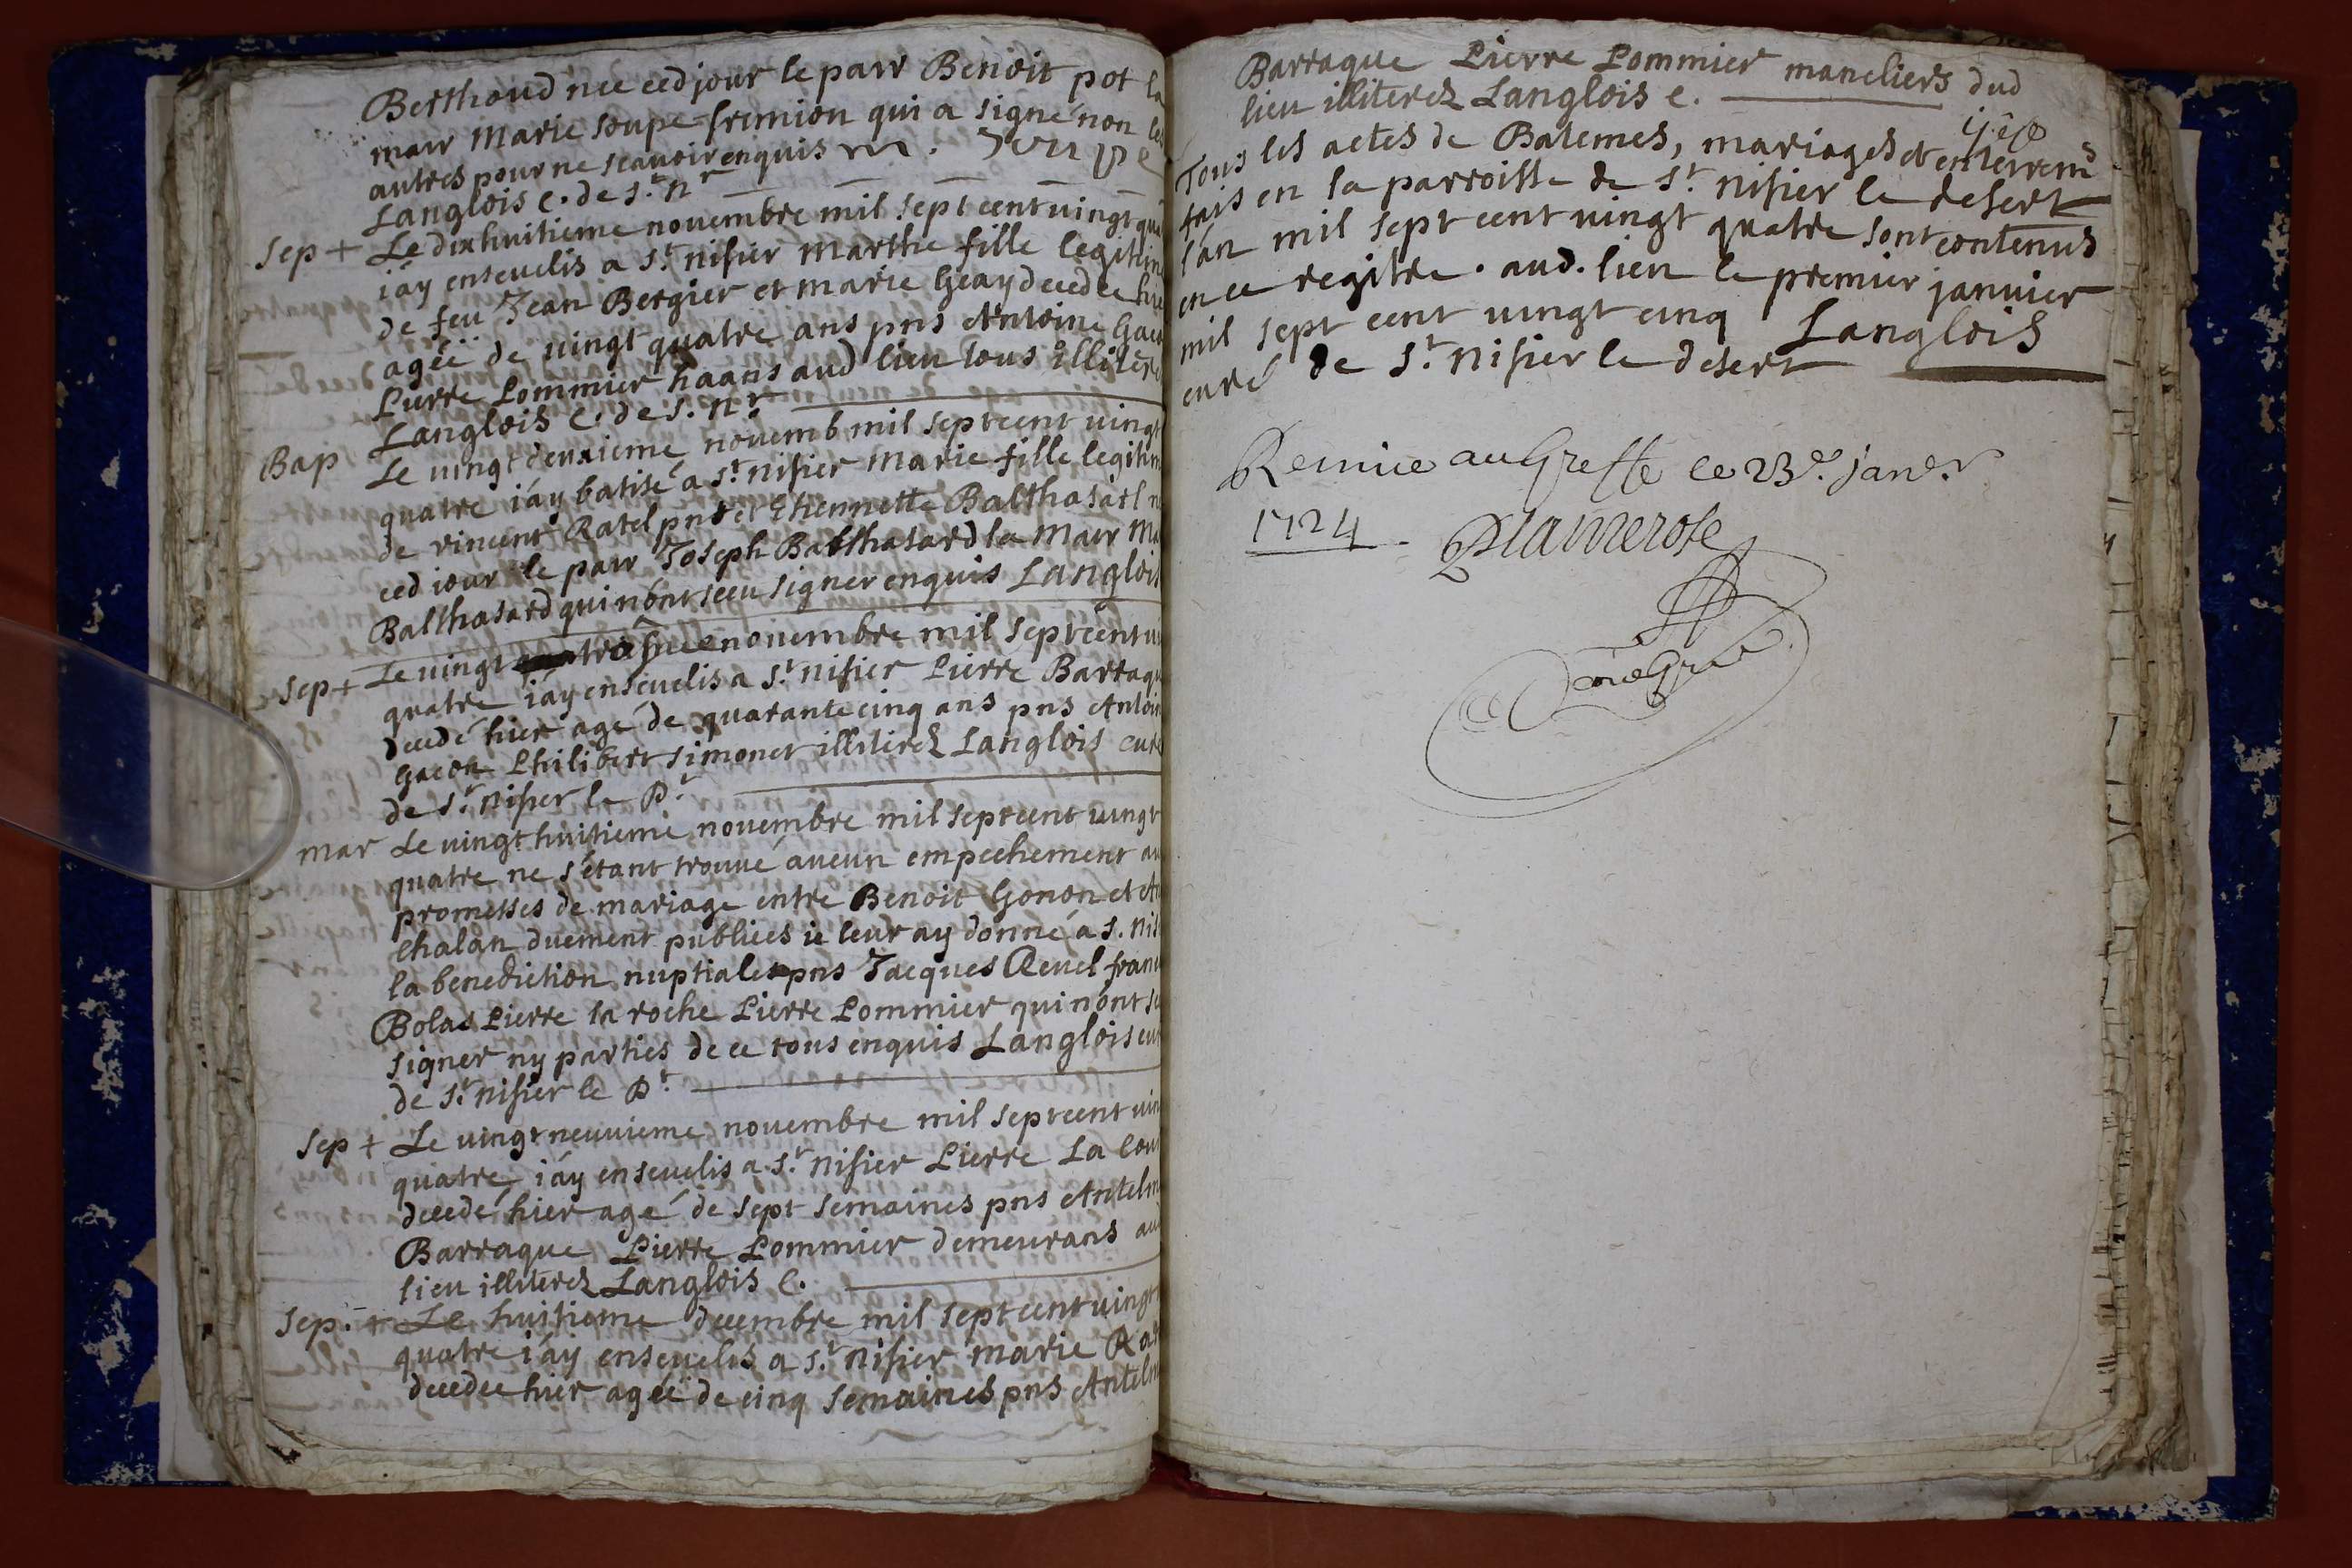 Berthoud née ced jour le parr Benoit pot la
marr Marie Soupe fremion qui a signé non les
autres pour ne scauoir enquis m. Soupe
Langlois c. de St. nr
Sep + Le dixhuitieme nouembre mil sept cent uingt qua
i'ay enseuelis a St nisier Marthe fille legitime
de feu Jean Bergier et marie Geay decedee hier
agée de uingt quatre ans pns Antoine Gacon
Pierre Pommier haans aud lieu tous illiterez
Langlois C. de S. nr.
Bap Le uingt deuxieme nouemb mil sept cent uingt
quatre i'ay batisé a St nisier Marie fille legitime
de vincent Ratel pnt et Ehennette Balthasard née
ced iour le parr Joseph Balthasard la Marr Ma
Balthasard qui n'ont sceu signer enquis Langlois
Sep + Le uingt nouembre mil sept cent u
quatre i'ay enseuelis a St nisier Pierre Barraqu
decedé hier agé de quarante cinq ans pns Antoin
Gacon Philibert Simonet illiterez Langlois curé
de St. nisier le Dt
mar Le uingt huitieme nouembre mil sept cent uingt
quatre ne s'étant trouué aucun empechement au
promesses de mariage entre Benoit Gonon et An
Chalan duement publiées ie leur ay donné a S. Nis
la benediction nuptiale pns Jacques Reuel franc
Bolas Pierre la roche Pierre Pommier qui n'ont sc
signer ny parties de ce tous enquis Langlois cur
de St. nisier le Dt.
Sep + Le uingt neuuieme nouembre mil sept cent uin
quatre i'ay enseuelis a St. nisier Pierre La Cou
decedé hier agé de sept semaines pns Antelm
Barraque Pierre Pommier demeurans au
lieu illiterez Langlois C.
Sep. + Le huitieme decembre mil sept cent uingt
quatre i'ay enseuelis a St. nisier Marie Rat
decedee hier agée de cinq semaines pns Antelm
Barraque Pierre Pommier maneliers dud
lieu illiterez Langlois c.
Tous les actes de Batemes, mariages et enterrems
fais en la parroisse de St. nisier le desert
l'an mil sept cent uingt quatre sont contenus
en ce regitre. aud. lieu le premier januier
mil sept cent uingt cinq Langlois
curé de St. nisier le desert
Remice au Greffe ce 23e. janer
1724